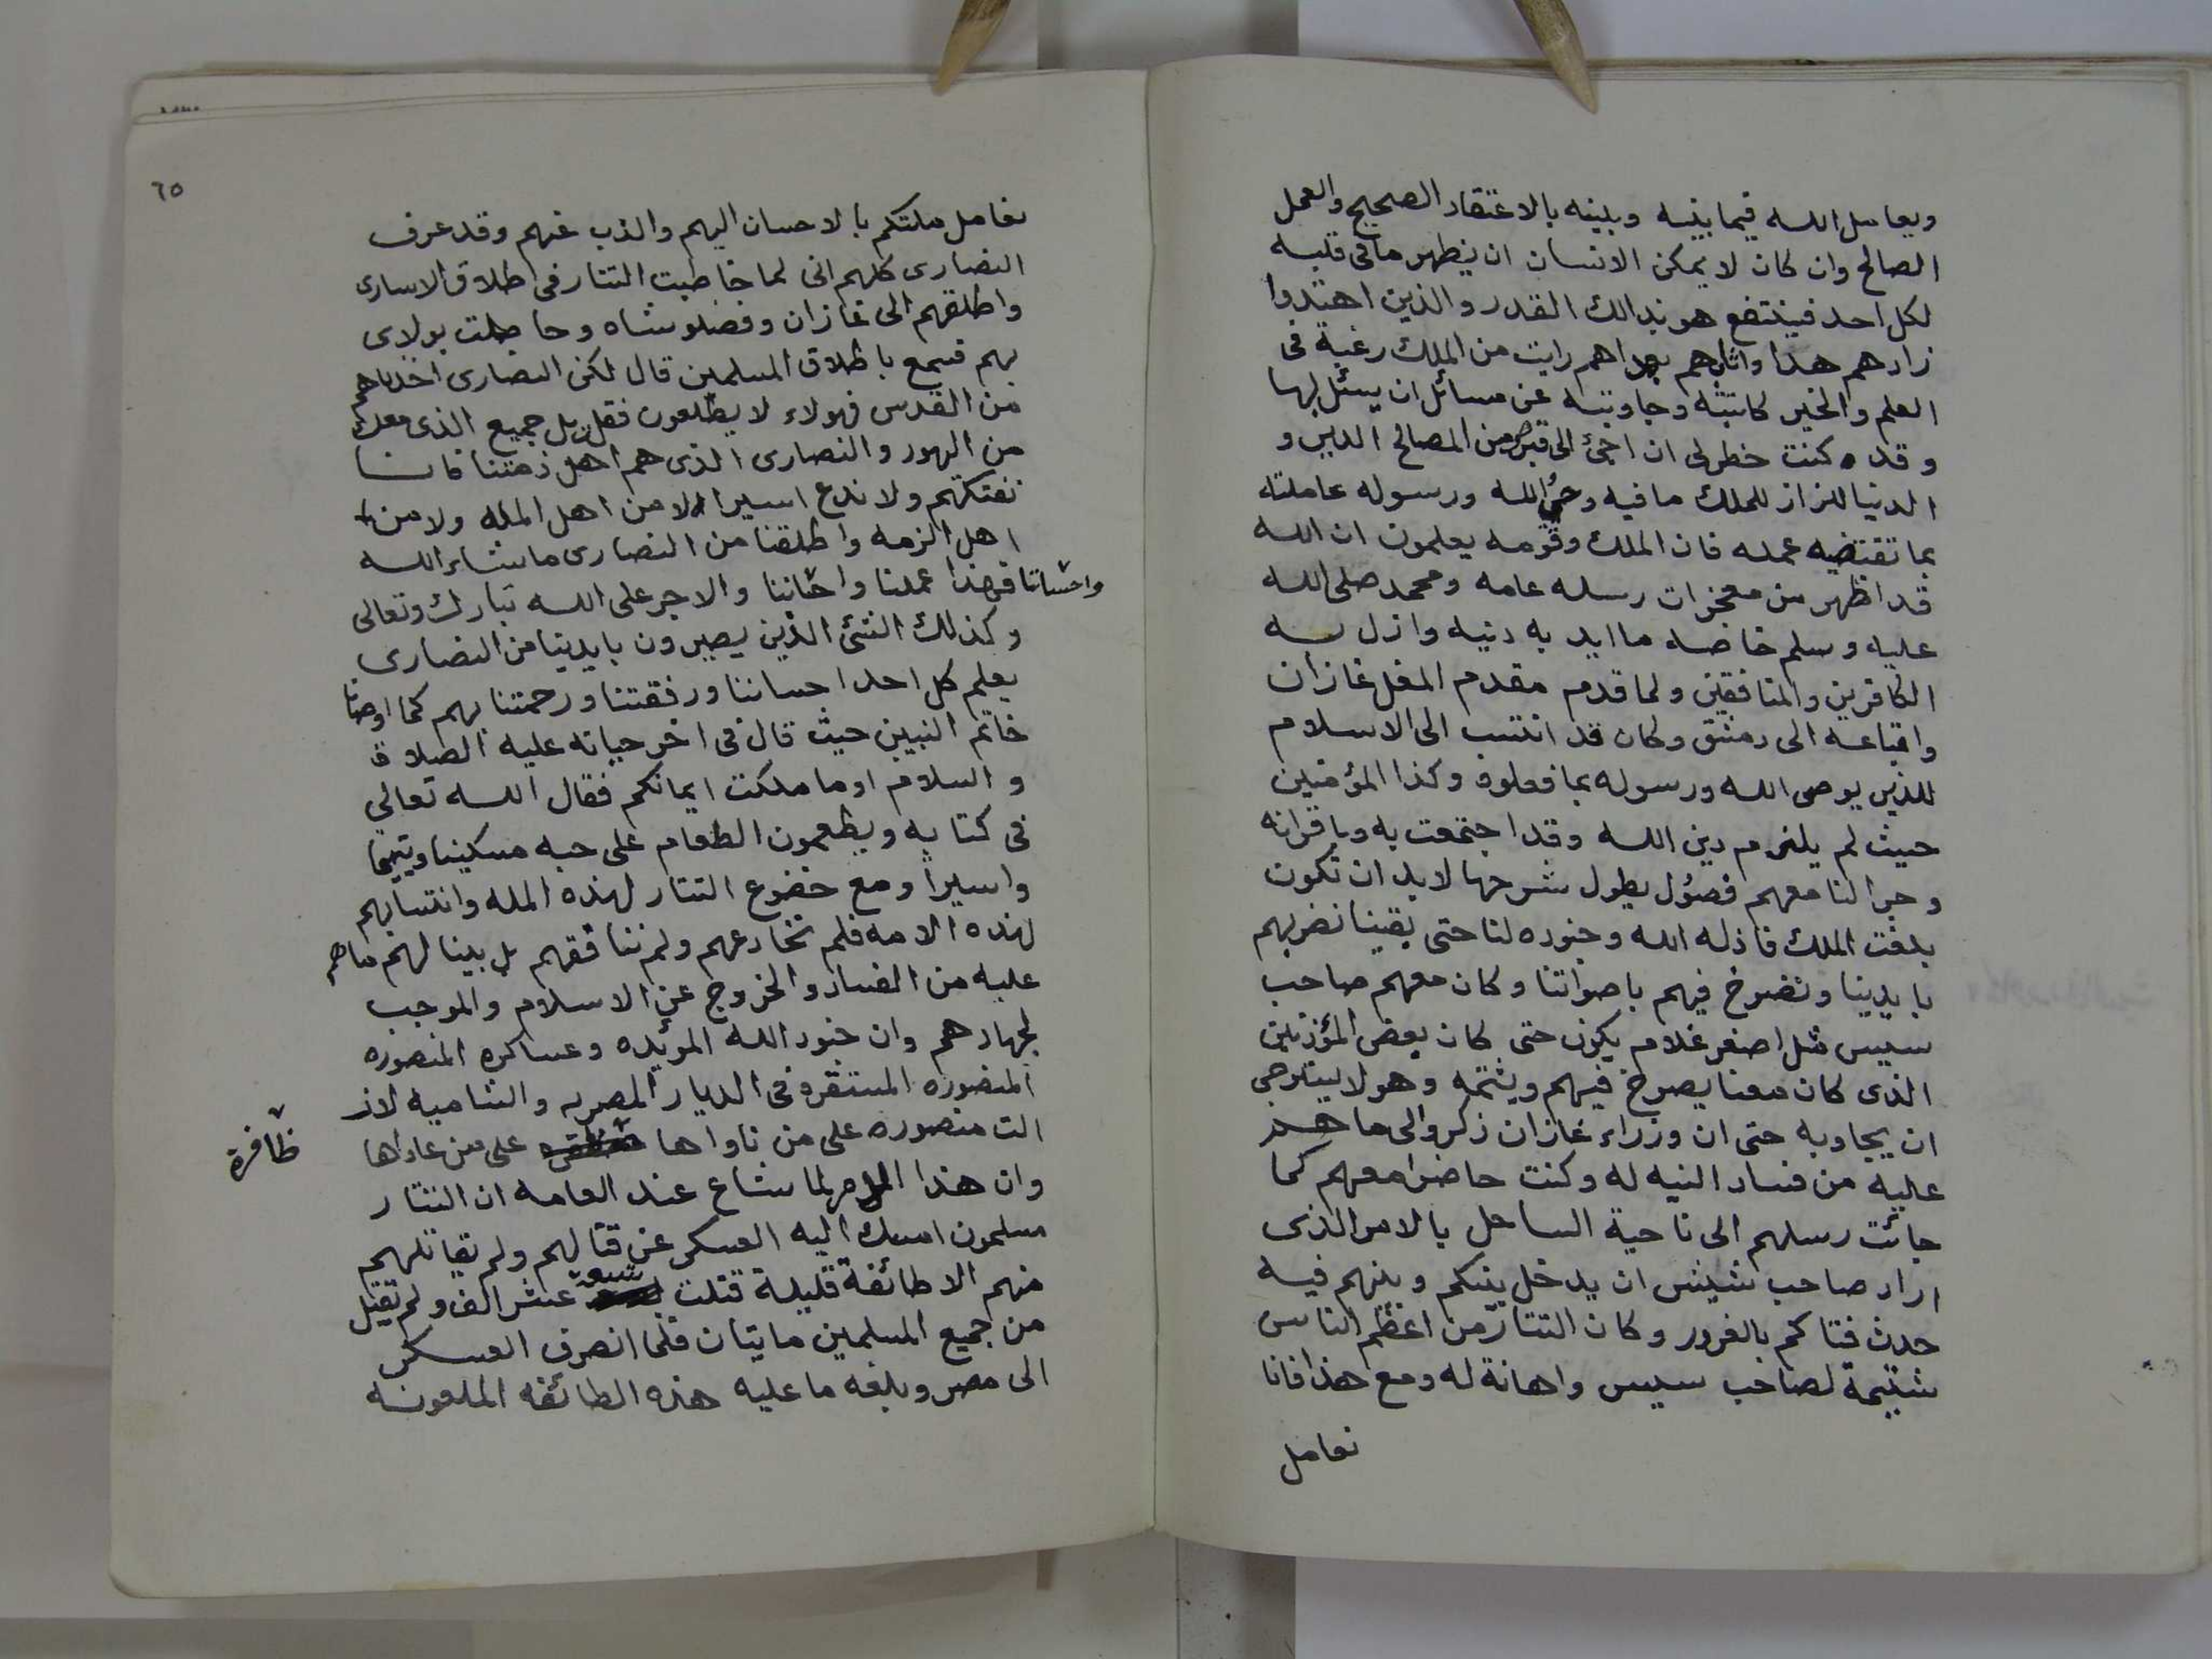 ويعامل الله فيما بينه وبينه بالاعتقاد الصحيح والعمل
الصالح وان كان لا يمكن الانسان ان يظهر ما فى قلبه
لكل احد فينتفع هو بذالك القدر والذين اهتدوا
زادهم هدا واتاهم تقواهم رايت من الملك رغبة فى
العلم والخير كاتبته وجاوبته عن مسائل ان يسئل لها
وقد كنت خطر لى ان اجئ الى قبرص من المصالح الدين و
الدنيا لكن اذ للملك ما فيه الله ورسوله عاملته
بما تقتضيه عمله فان الملك وقومه يعلمون ان الله
قد اظهر من معجزات رسله عامه ومحمد صلى الله
عليه وسلم خاصه ما ايد به دينه واذل به
الكافرين والمنافقين ولما قدم مقدم المغل غازان
واتباعه الى دمشق وكان قد انتسب الى الاسلام
للذين يوصى الله ورسوله بما فعلوه وكذا المؤمنين
حيث لم يلتزم دين الله وقد اجتمعت به وباقرانه
وجرا لنا معهم فصول يطول شرحها لابد ان تكون
بلغت الملك فاذله الله وجنوده لنا حتى بقينا نضربهم
بايدينا ونصرخ فيهم باصواتنا وكان معهم صاحب
سيس مثل اصغر غلام يكون حتى كان بعض المؤذنين
الذى كان معنا يصرخ فيهم ويشتمه وهو لا يتجرى
ان يجاوبه حتى ان وزراء غازان ذكروا لى ما هم
عليه من فساد النيه له وكنت حاضرا معهم كما
جائت رسلهم الى ناحية الساحل بالامر الذى
اراد صاحب شيش ان يدخل بينكم وبينهم فيه
حدث فتاكم بالغرور وكان التتار من اعظم الناس
شتيمة لصاحب سيس واهانة له ومع هذا فانا
نعامل
٦٥
نعامل ملتكم بالاحسان اليهم والذب عنهم وقد عرف
النصارى كلهم انى لما خاطبت التتار فى اطلاق الاسارى
واطلقهم الى غازان وفصلو شاه وخاطبت بولاى
بهم فسمح باطلاق المسلمين قال لكن النصارى اخذناهم
من القدس فهولاء لا يطلعون فقلت بل جميع الذى معك
من اليهود والنصارى الذى هم اهل ذمتنا فانا
نفتكهم ولا ندع اسيرا لا من اهل المله ولا من
اهل الزمه واطلقنا من النصارى ما شاء الله
فهذا عملنا واحساننا والاجر على الله تبارك وتعالى
وكذلك الشئ الذين يصيرون بايدينا من النصارى
يعلم كل احد احساننا ورفقتنا ورحمتنا بهم كما اوصانا
خاتم النبين حيث قال فى اخر حياته عليه الصلاة
والسلام اوما ملكت ايمانكم فقال الله تعالى
فى كتابه ويطعمون الطعام على حبه مسكينا ويتيما
واسيرا ومع خضوع التتار لهذه المله وانتسابهم
لهذه الامه فلم نخادعهم ولم ننافقهم بل بينا لهم ما هم
عليه من الفساد والخروج عن الاسلام والموجب
لجهادهم وان جنود الله المؤيده وعساكره المنصوره
المنصوره المستقره فى الديار المصريه والشاميه لاز
الت منصوره على من ناواها على من عاداها
ظافرة
وان هذا الامر لما شاع عند العامه ان التتار
مسلمون امسك اليه العسكر عن قتالهم ولم يقاتلهم
منهم الا طائفة قليلة قتلت تسعة عشر الف ولم تقتل
من جميع المسلمين مايتان فلما انصرف العسكر
الى مصر وبلغه ما عليه هذه الطائفه الملعونه
واحساننا